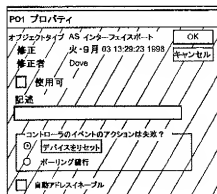 PO1 プロパティ
オブジェクトタイプ AS インターフェイスポート
OK
修正 火・9月 03 13:29:23 1998
キャンセル
修正者 Dove
使用可
記述
コントローラのイベントのアクションは失敗?
デバイスをリセット
ポーリング続行
自動アドレスイネーブル